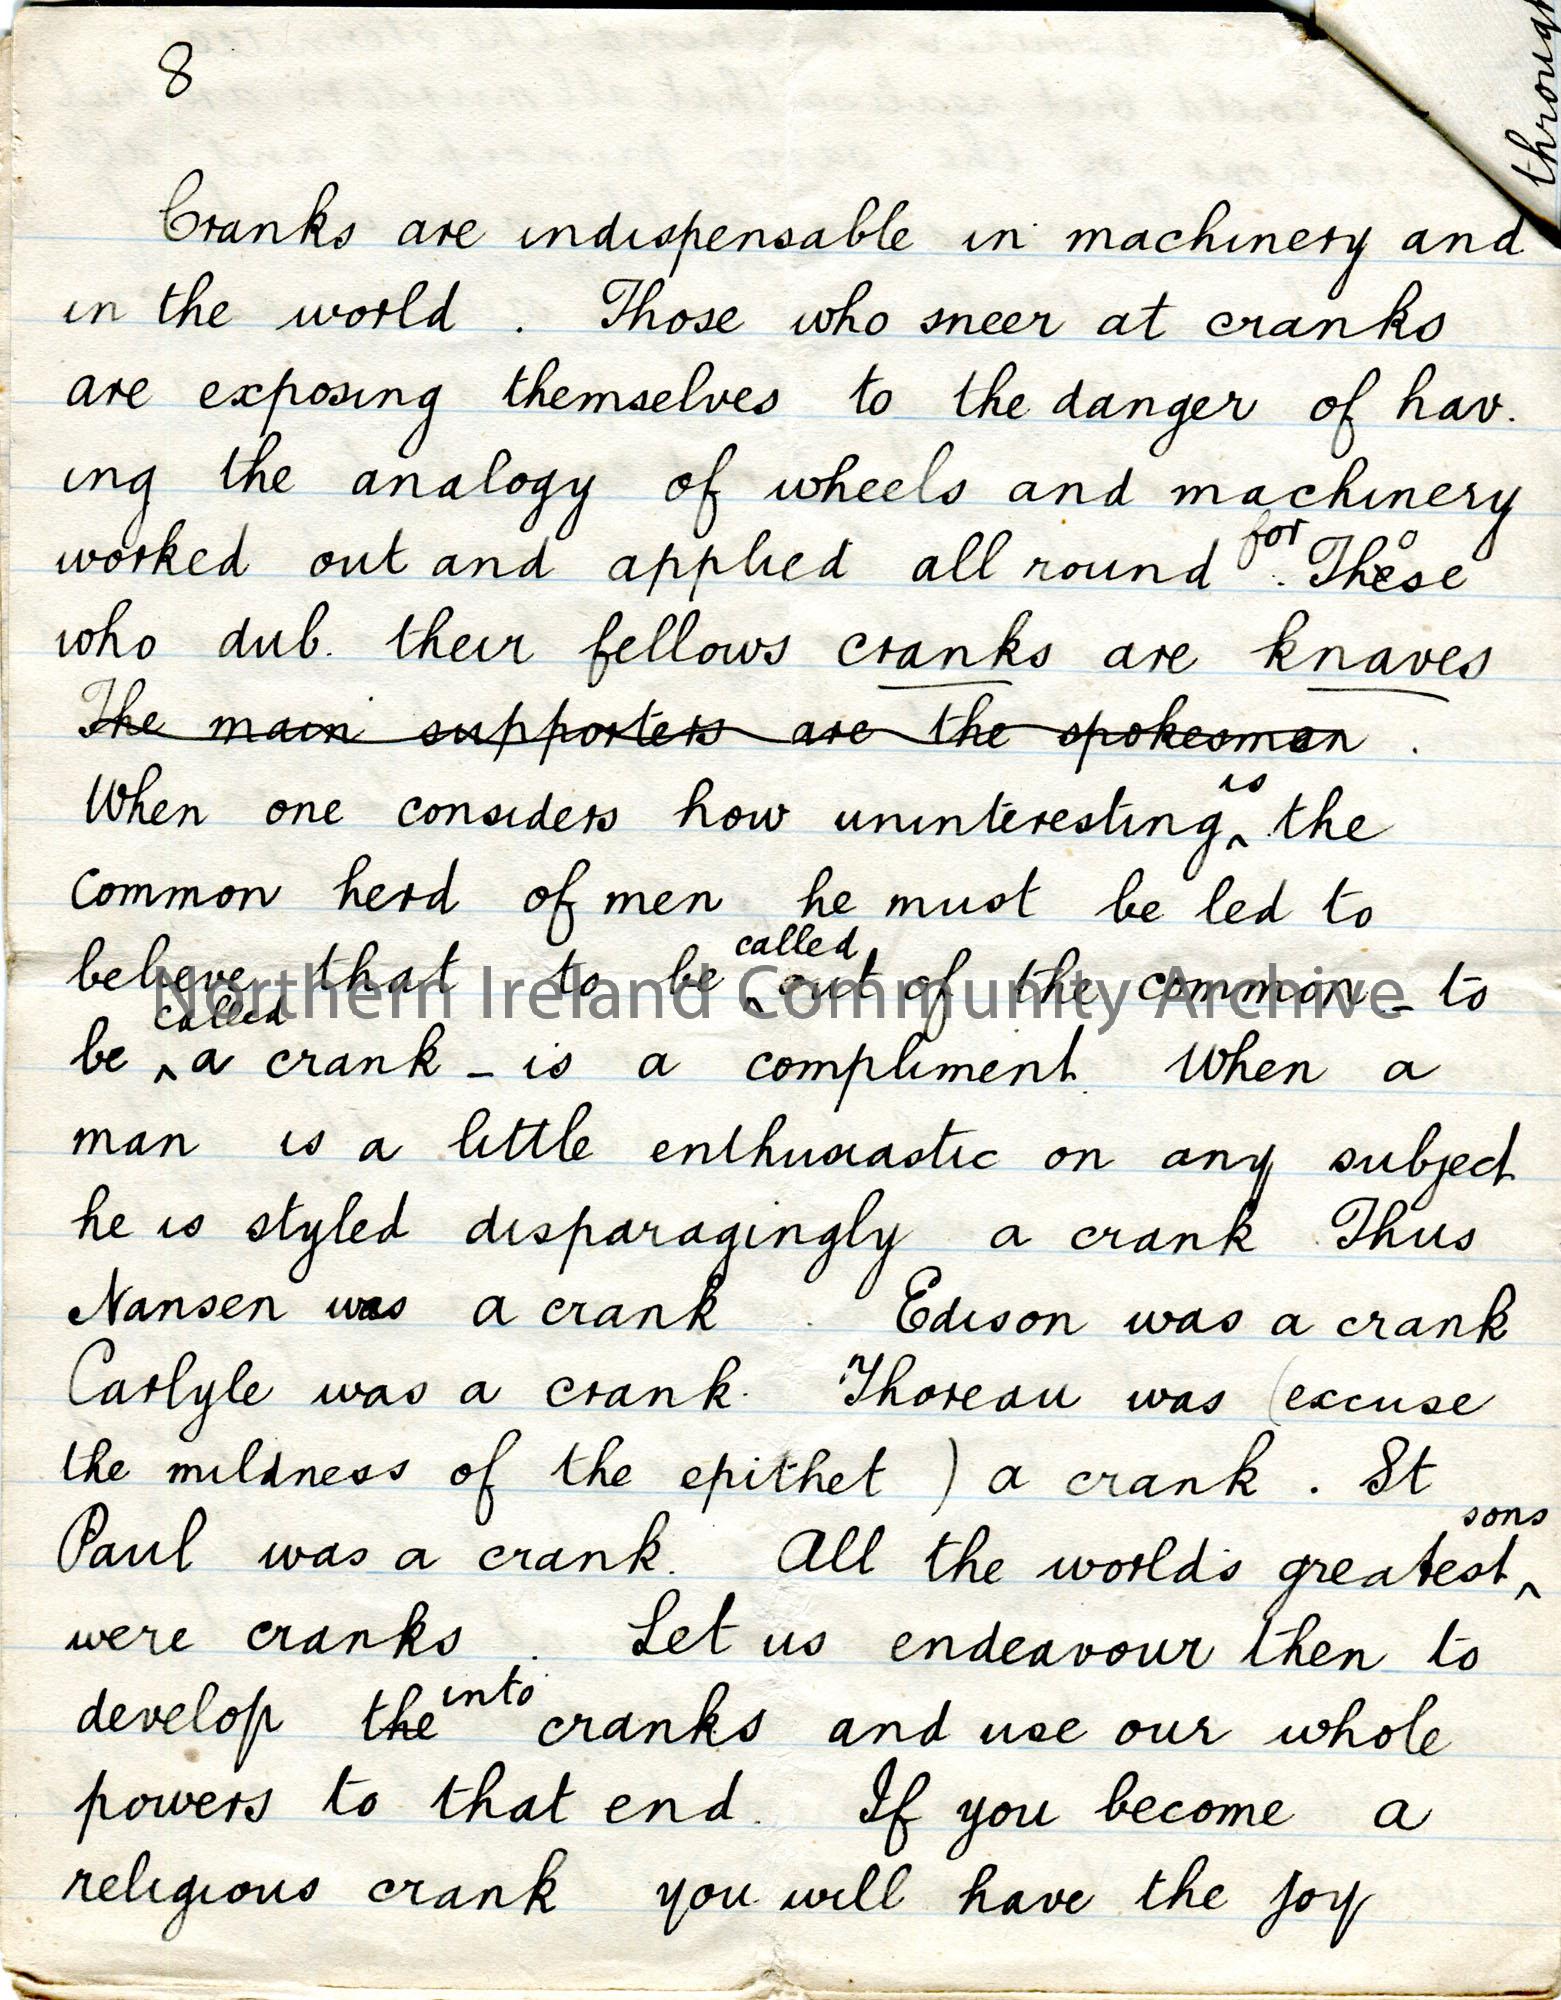 8
through
Cranks are indispensable in machinery and
in the world . Those who sneer at cranks
are exposing themselves to the danger of hav.
ing the analogy of wheels and machinery
worked out and applied all round for. Those
who dub. their fellows cranks are knaves
The main supporters are the spokesman .
When one considers how uninteresting is the
common herd of men he must be led to
believe that to be called out of the common - to
Northern Ireland Community Archive
be called a crank - is a compliment. When a
man is a little enthusiastic on any subject
he is styled disparagingly a crank Thus
Nansen was a crank . Edison was a crank
Carlyle was a crank. Thoreau was (excuse
the mildness of the epithet ) a crank . St
Paul was a crank. All the world's greatest sons
were cranks . Let us endeavour then to
develop the into cranks and use our whole
powers to that end. If you become a
religious crank you will have the joy